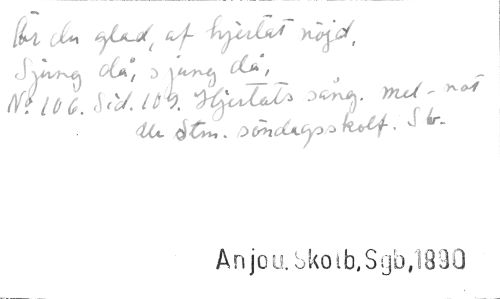 Är du glad, af hjertat nöjd,
Sjung då, sjung då,
No 106. Sid. 109. Hjertats sång. mel-not
ur Stm. söndagsskolf. Sb.
Anjou. Skolb, Sgb, 1890